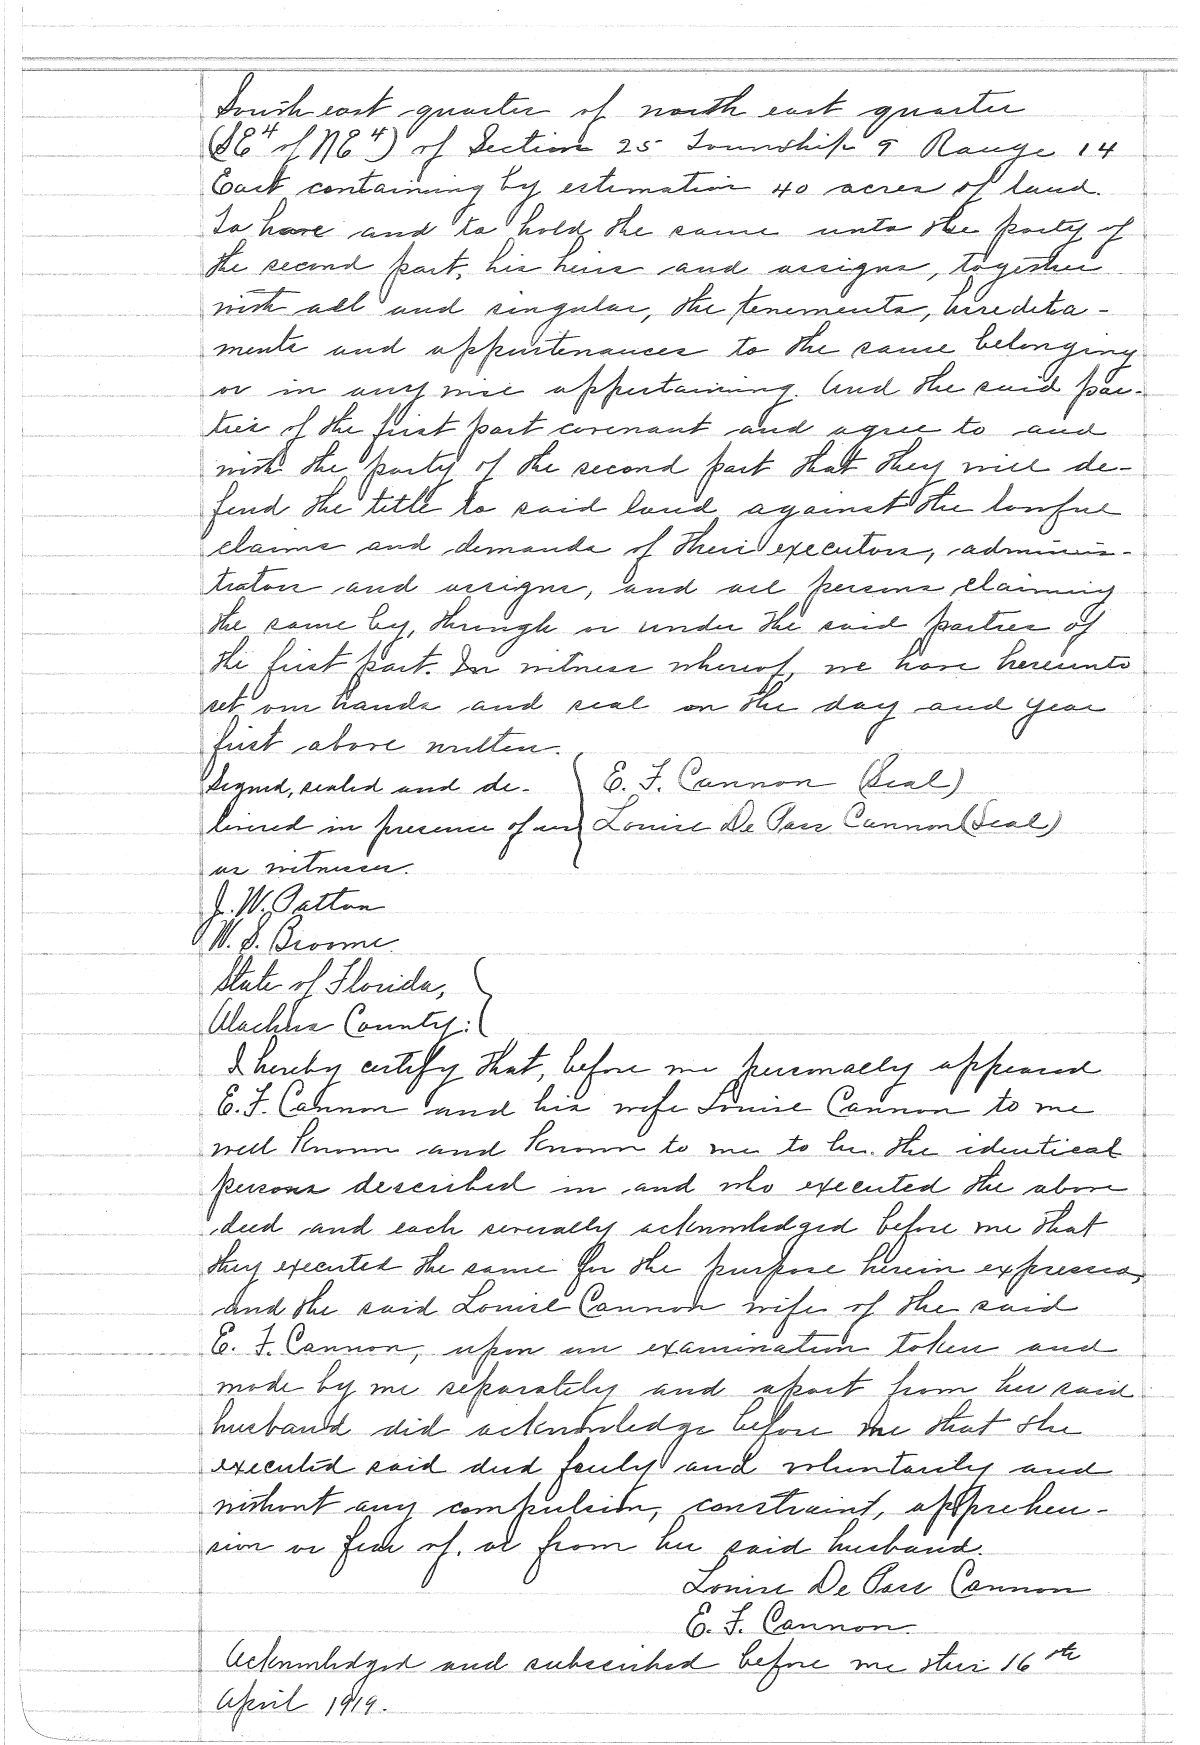 South east quarter of north east quarter
(SE4 of NE4) of Section 25 Township 9 Range 14
East containing by estimation 40 acres of land.
To have and to hold the same unto the party of
the second part, his heirs and assigns, together
with all and singular, the tenements, hereditia-
ments and appurtenances to the same belonging
or in any wise appertaining. And the said par-
ties of the first part covenant and agree to and
with the party of the second part that they will de-
fend the title to said land against the lawful
claims and demands of their executors, adminis-
trators and assigns, and all persons claiming
the same by, through or under the said parties of
the first part. In witness whereof, we have hereunto
set our hands and seal on the day and year
first above written.
Signed, sealed and de- E. F. Cannon (Seal)
livered in presence of us Louise De Pass Cannon (Seal)
as witnesses.
J. W. Patton
W. S. Broome.
State of Florida,
Alachua County:
I hereby certify that, before me personally appeared
E. F. Cannon and his wife Louise Cannon to me
well known and known to me to be the identical
persons described in and who executed the above
deed and each severally acknowledged before me that
they executed the same for the purpose herein expressed,
and the said Louise Cannon wife of the said
E. F. Cannon, upon an examination taken and
made by me separately and apart from her said
husband did acknowledge before me that she
executed said deed freely and voluntarily and
without any compulsion, constraint, apprehen-
sion or fear of, or from her said husband.
Louise De Pass Cannon
E. F. Cannon.
Acknowledged and subscribed before me this 16th
April 1919.